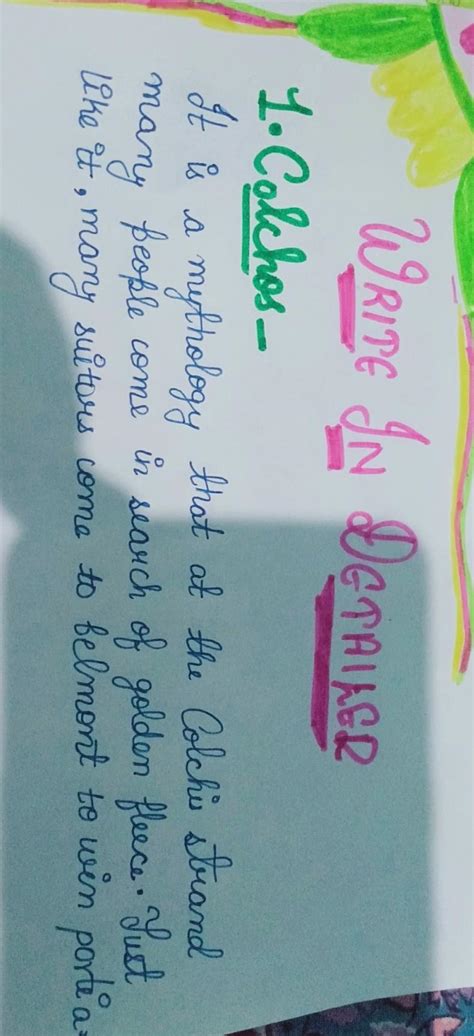 WRITE IN DETAILED
1. Colchos -
It is a mythology that at the Colchis strand
many people come in search of golden fleece. Just
like it, many suitors come to belmont to win portia.